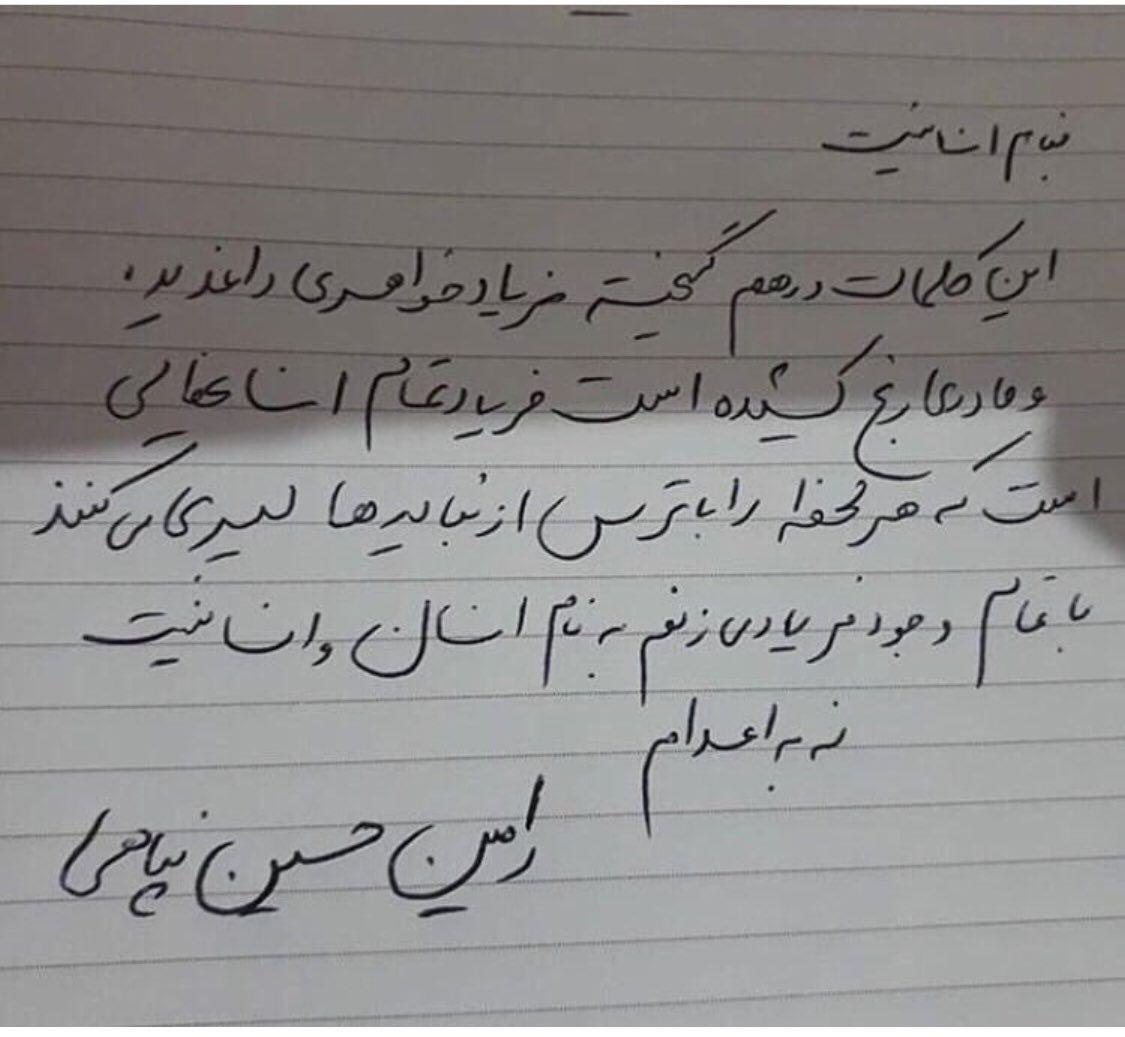 بنام انسانیت
این کلمات درهم گیخته فریاد خواهری داغدیده
و مادری رنج کشیده است فریاد تمام انسانهایی
است که هر لحظه را با ترس از نبایدها سپری می کنند
با تمام وجود فریاد می زنم به نام انسان و انسانیت
نه به اعدام
رامین حسین پناهی